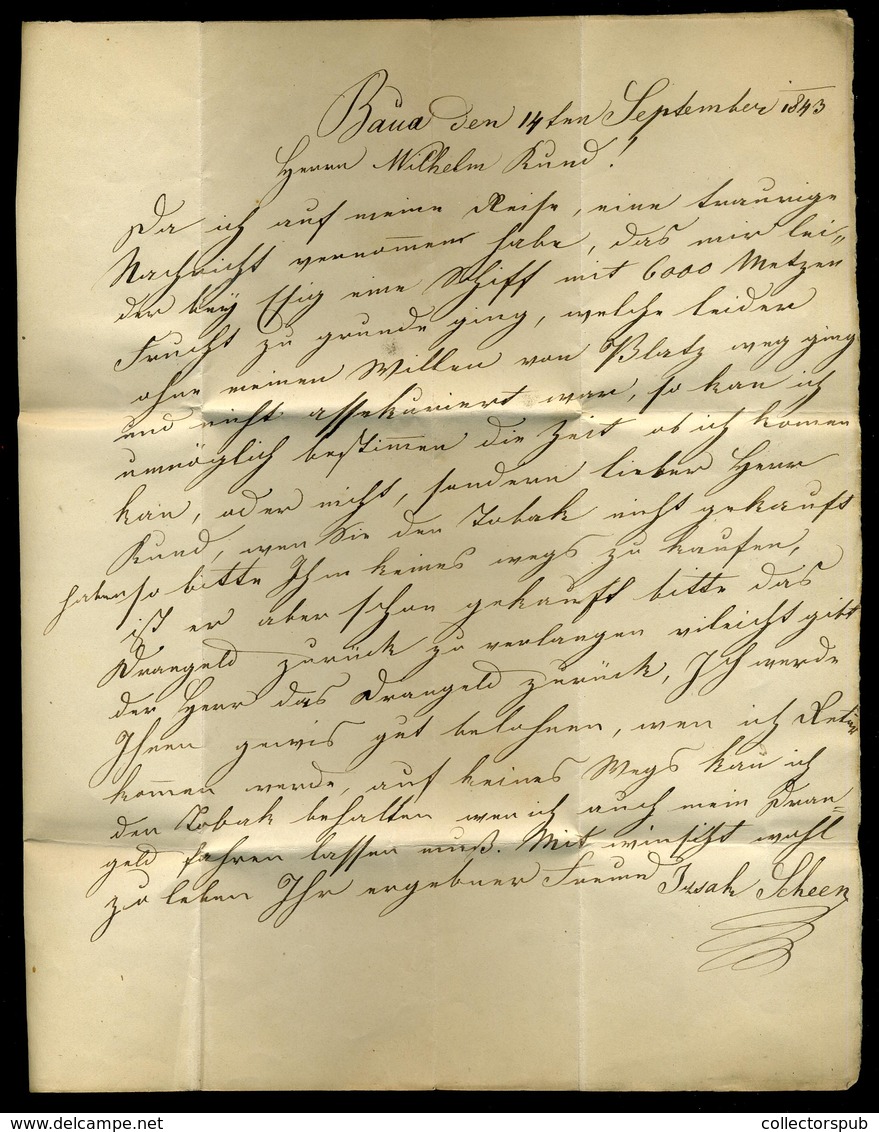 Baua den 14ten September 1843
Herrn Wilhelm Kund!
Da ich auf meine Reise, eine traurige
Nachricht vernommen habe, das mir lei-
der bey Essig eine Schiff mit 6000 Metzen
Frucht zu grunde ging, welche leider
ohne meinen Willen von Platz weg ging
und nicht assekuriert war, so kan ich
unmöglich bestimmen die Zeit ob ich komen
kan, oder nicht, sondern lieber Herr
Kund, wen Sie den Tobak nicht gekauft
haben so bitte Ihm keines wegs zu kaufen,
ist er aber schon gekauft bitte das
Drangeld zurück zu verlangen vileicht gibt
der Herr das Drangeld zurück, Ich werde
Ihnen gewis gut belohnen, wen ich Retur
kommen werde, auf keines Wegs kan ich
den Tobak behalten wen ich auch mein Dran-
geld fahren lassen muß. Mit winscht wohl
zu leben Ihr ergebner Freund Isak Scheen
collectorspub